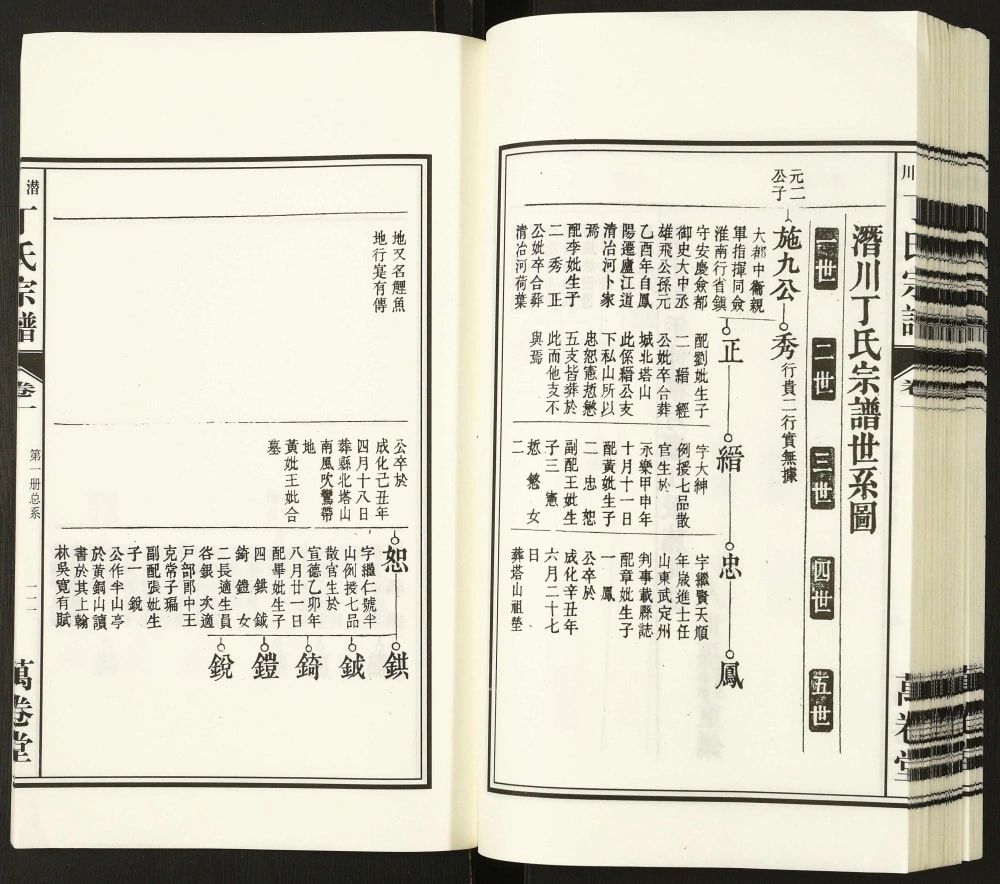 潛川丁氏宗譜世系圖
世
二世
三世
四世
五世
元二
公子
施九公
大都中衛親
軍指揮同僉
淮南行省鎭
守安慶僉都
御史大中丞
雄飛公孫元
乙酉年自鳳
陽遷廬江道
清冶河卜家
焉
配李妣生子
二 秀 正
公妣卒合葬
清冶河荷葉
秀
行貴二行實無據
正
配劉妣生子
二 縉 經
公妣卒合葬
城北塔山
此係縉公支
下私山所以
忠恕憲悊慜
五支皆葬於
此而他支不
與焉
縉
字大紳
例授七品散
官生於
永樂甲申年
十月十一日
配黃妣生子
二 忠 恕
副配王妣生
子三 憲
悊 慜 女
二
忠
字繼賢天順
年歲進士任
山東武定州
判事載縣誌
配章妣生子
一 鳳
公卒於
成化辛丑年
六月二十七
日
葬塔山祖塋
鳳
川
丁氏宗譜
卷一
萬卷堂
地又名鯉魚
地行寔有傳
公卒於
成化己丑年
四月十八日
葬縣北塔山
南風吹鸞帶
地
黃妣王妣合
墓
恕
字繼仁號半
山例授七品
散官生於
宣德乙卯年
八月廿一日
配畢妣生子
四 鉷 鉞
錡 鎧 女
二長適生員
咎銀 次適
戸部郎中王
克常子瑞
副配張妣生
子一 銳
公作半山亭
於黃銅山讀
書於其上翰
林吳寬有賦
鉷
鉞
錡
鎧
銳
潜
丁氏宗譜
卷一
第一册总系
一一
萬卷堂